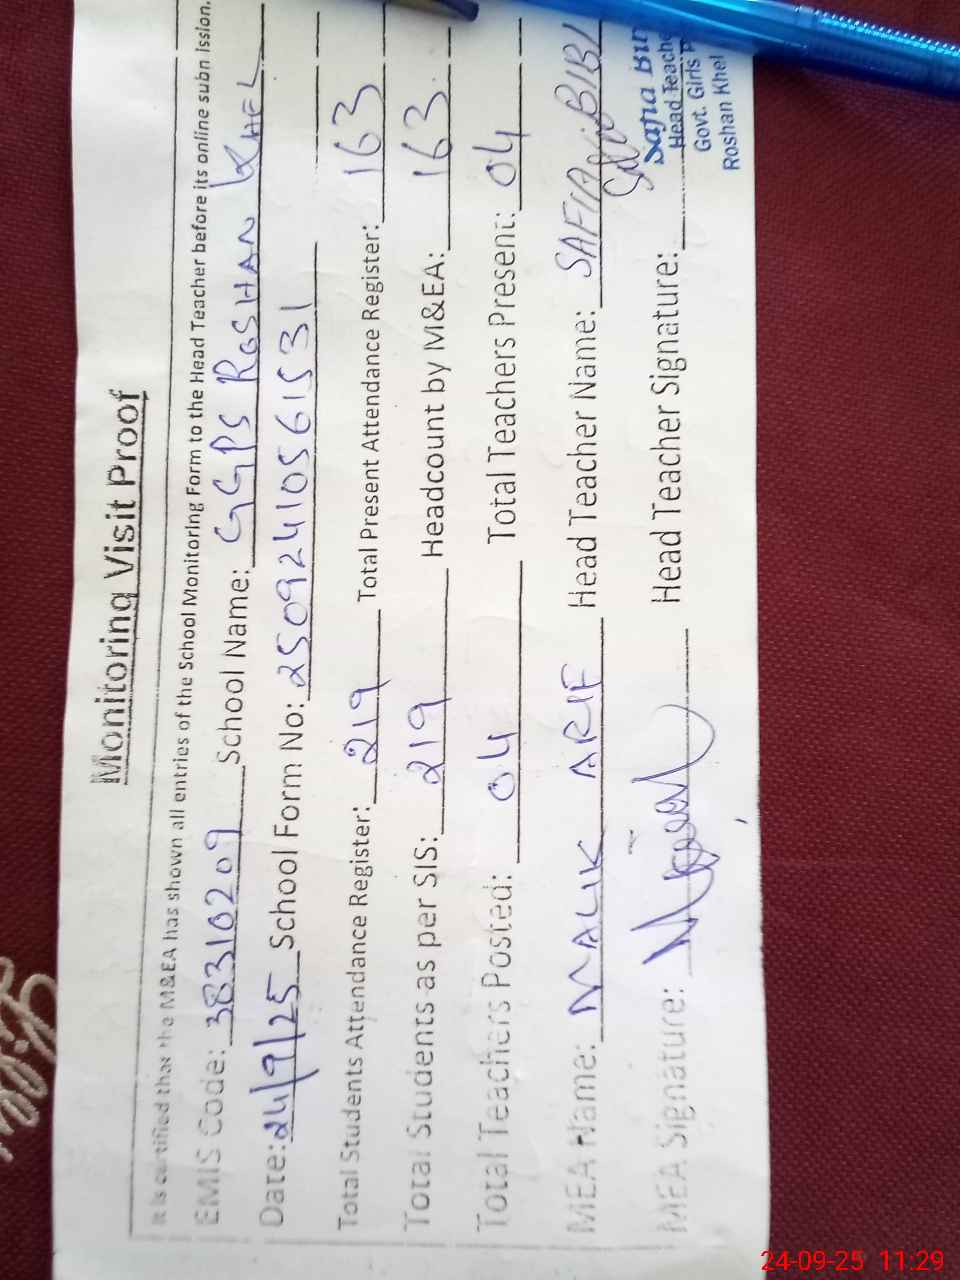 Monitoring Visit Proof
It is certified that the M&EA has shown all entries of the School Monitoring Form to the Head Teacher before its online submission.
EMIS Code: 38310209 School Name: GGPS ROSHAN KHEL
Date: 24/9/25 School Form No: 25092410561531
Total Students Attendance Register: 219 Total Present Attendance Register: 163
Total Students as per SIS: 219 Headcount by M&EA: 163
Total Teachers Posted: 04 Total Teachers Present: 04
MEA Name: MALIK ARIF Head Teacher Name: SAFIA BIBI
MEA Signature: Head Teacher Signature:
Safia Bibi
Head Teache
Govt. Girls P
Roshan Khel
24-09-25 11:29